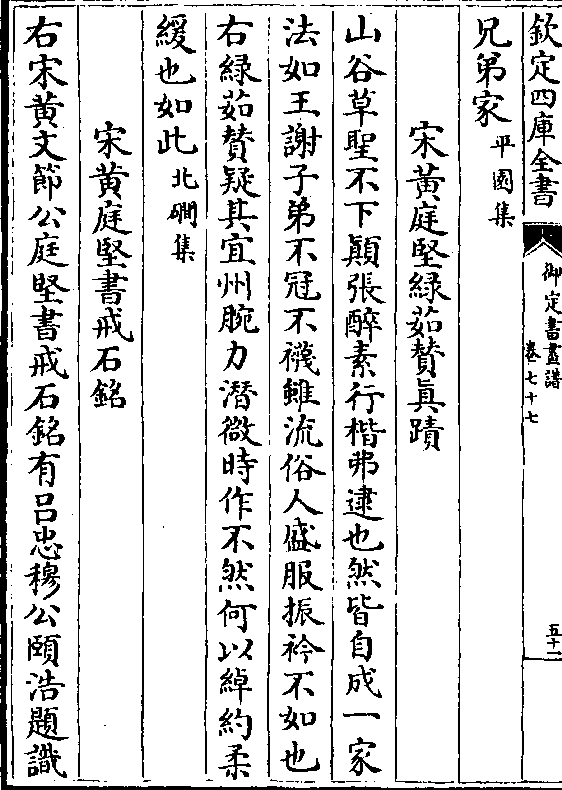 欽定四庫全書
御定書畫譜
卷七十七
五十一
兄弟家 平園集
宋黄庭堅綠茹贊眞蹟
山谷草聖不下顚張醉素行楷弗逮也然皆自成一家
法如王謝子弟不冠不襪雖流俗人盛服振衿不如也
右綠茹贊疑其宜州腕力潜微時作不然何以綽約柔
緩也如此 北磵集
宋黄庭堅書戒石銘
右宋黄文節公庭堅書戒石銘有吕忠穆公頤浩題識